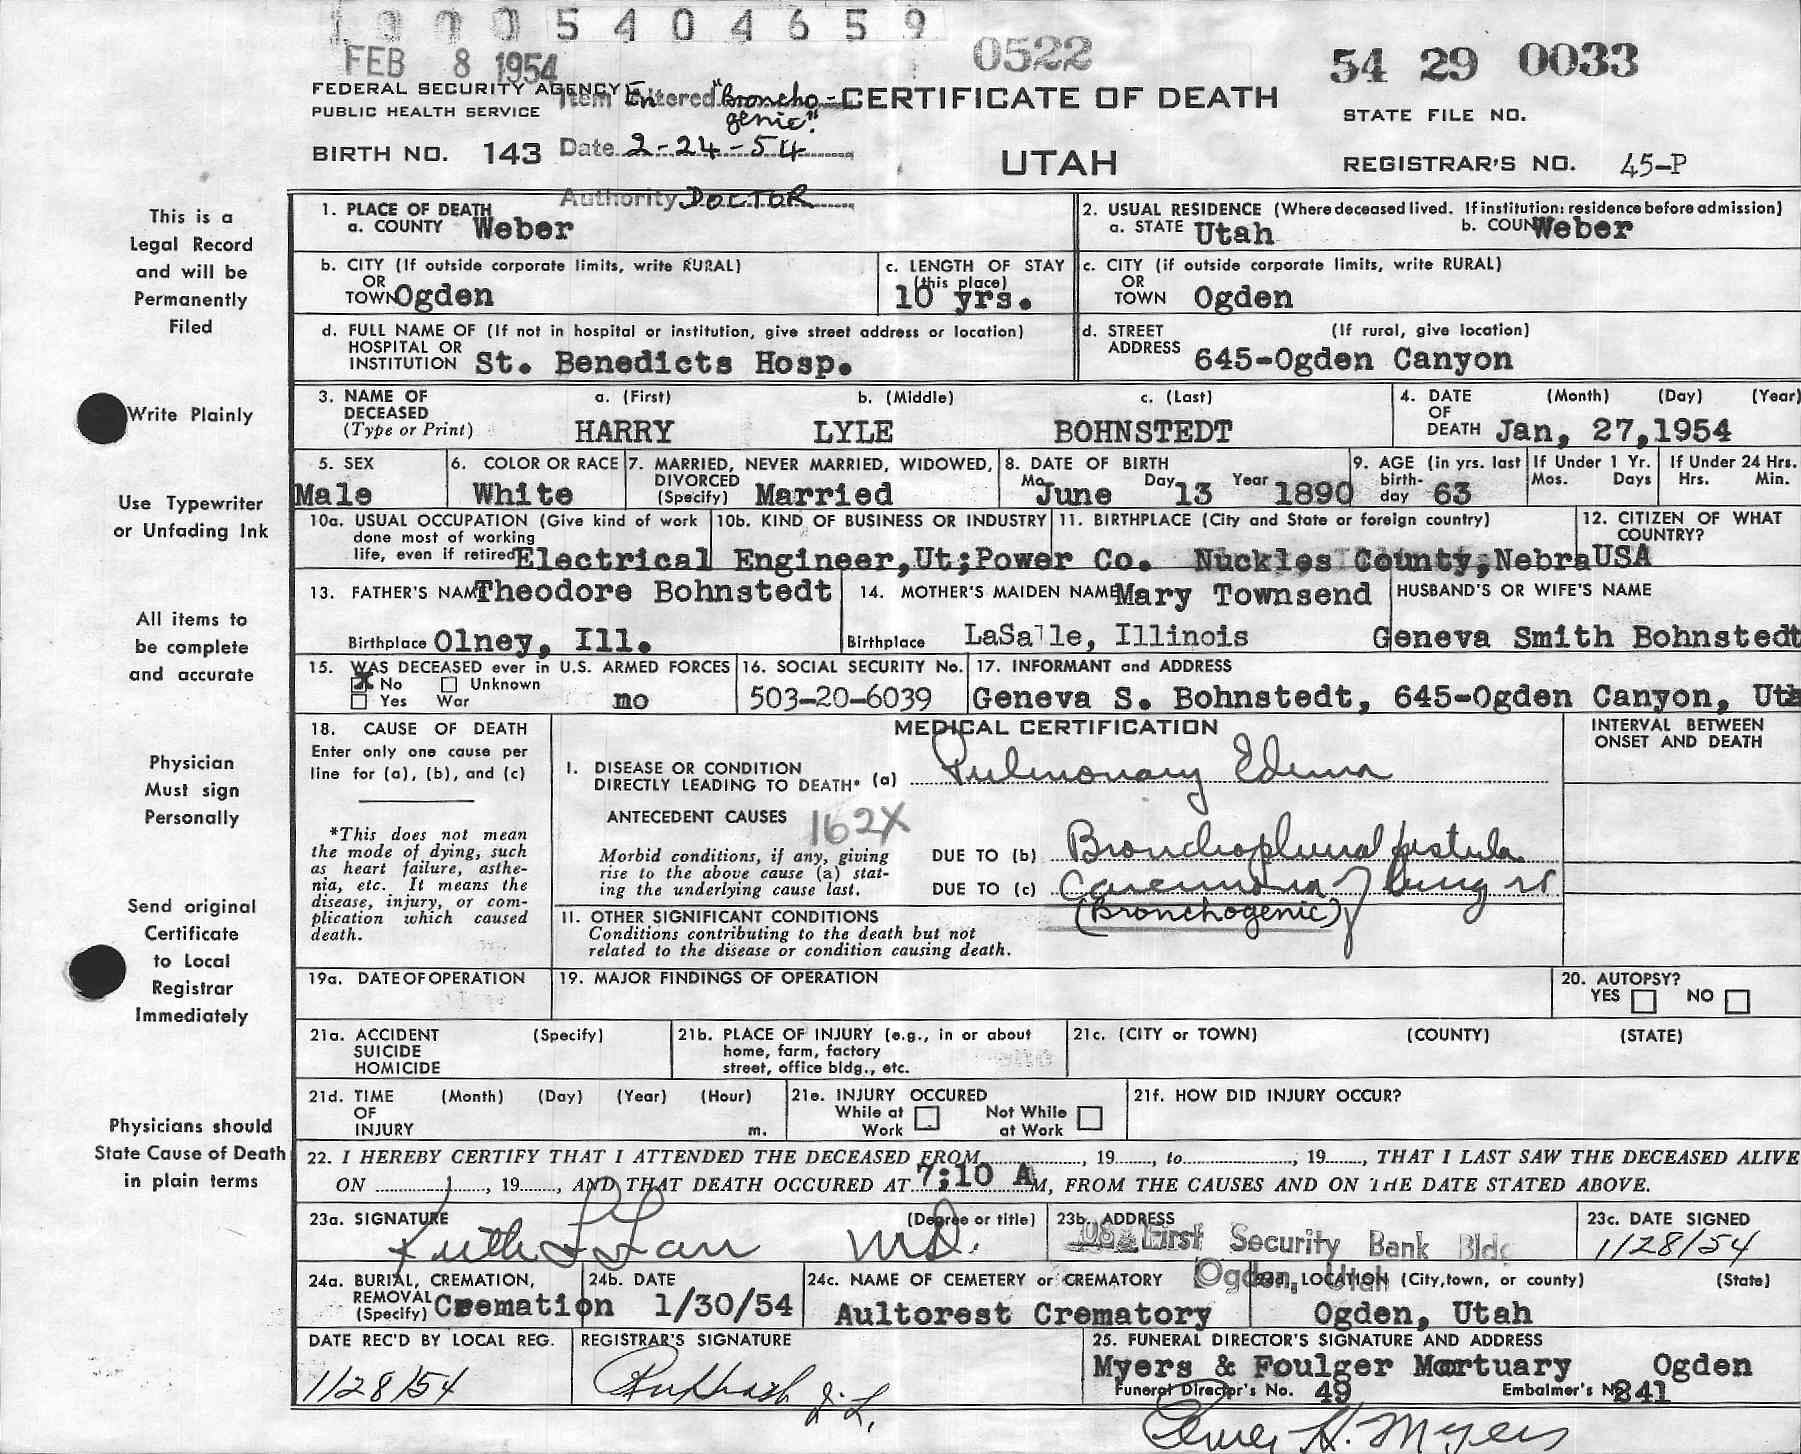 1 0 0 0 5 4 0 4 6 5 9
FEB 8 1954
0522
54 29 0033
FEDERAL SECURITY AGENCY
PUBLIC HEALTH SERVICE
Item Entered "Broncho-
genic"
CERTIFICATE OF DEATH
STATE FILE NO.
BIRTH NO. 143
Date 2-24-54
UTAH
REGISTRAR'S NO. 45-P
Authority DOCTOR
This is a
Legal Record
and will be
Permanently
Filed
Write Plainly
Use Typewriter
or Unfading Ink
All items to
be complete
and accurate
Physician
Must sign
Personally
Send original
Certificate
to Local
Registrar
Immediately
Physicians should
State Cause of Death
in plain terms
1. PLACE OF DEATH
a. COUNTY Weber
2. USUAL RESIDENCE (Where deceased lived. If institution: residence before admission)
a. STATE Utah b. COUN Weber
b. CITY (If outside corporate limits, write RURAL)
OR
TOWN Ogden
c. LENGTH OF STAY
(this place)
10 yrs.
c. CITY (if outside corporate limits, write RURAL)
OR
TOWN Ogden
d. FULL NAME OF (If not in hospital or institution, give street address or location)
HOSPITAL OR
INSTITUTION St. Benedicts Hosp.
d. STREET (If rural, give location)
ADDRESS 645-Ogden Canyon
3. NAME OF a. (First) b. (Middle) c. (Last)
DECEASED
(Type or Print) HARRY LYLE BOHNSTEDT
4. DATE (Month) (Day) (Year)
OF
DEATH Jan, 27,1954
5. SEX
Male
6. COLOR OR RACE
White
7. MARRIED, NEVER MARRIED, WIDOWED,
DIVORCED
(Specify) Married
8. DATE OF BIRTH
Mo. June Day 13 Year 1890
9. AGE (in yrs. last
birth-
day 63
If Under 1 Yr.
Mos. Days
If Under 24 Hrs.
Hrs. Min.
10a. USUAL OCCUPATION (Give kind of work
done most of working
life, even if retired Electrical Engineer,
10b. KIND OF BUSINESS OR INDUSTRY
Ut;Power Co.
11. BIRTHPLACE (City and State or foreign country)
Nuckles County,Nebra
12. CITIZEN OF WHAT
COUNTRY?
USA
13. FATHER'S NAM Theodore Bohnstedt
Birthplace Olney, Ill.
14. MOTHER'S MAIDEN NAME Mary Townsend
Birthplace LaSalle, Illinois
HUSBAND'S OR WIFE'S NAME
Geneva Smith Bohnstedt
15. WAS DECEASED ever in U.S. ARMED FORCES
X No Unknown
Yes War no
16. SOCIAL SECURITY No.
503-20-6039
17. INFORMANT and ADDRESS
Geneva S. Bohnstedt, 645-Ogden Canyon, Uta
18. CAUSE OF DEATH
Enter only one cause per
line for (a), (b), and (c)
*This does not mean
the mode of dying, such
as heart failure, asthe-
nia, etc. It means the
disease, injury, or com-
plication which caused
death.
MEDICAL CERTIFICATION
INTERVAL BETWEEN
ONSET AND DEATH
I. DISEASE OR CONDITION
DIRECTLY LEADING TO DEATH* (a) Pulmonary Edema
ANTECEDENT CAUSES 162X
Morbid conditions, if any, giving
rise to the above cause (a) stat-
ing the underlying cause last.
DUE TO (b) Bronchoplural fistula
DUE TO (c) Carcinoma of lung rt
(Bronchogenic)
II. OTHER SIGNIFICANT CONDITIONS
Conditions contributing to the death but not
related to the disease or condition causing death.
19a. DATE OF OPERATION
19. MAJOR FINDINGS OF OPERATION
20. AUTOPSY?
YES NO
21a. ACCIDENT (Specify)
SUICIDE
HOMICIDE
21b. PLACE OF INJURY (e.g., in or about
home, farm, factory
street, office bldg., etc.
21c. (CITY or TOWN) (COUNTY) (STATE)
21d. TIME (Month) (Day) (Year) (Hour)
OF
INJURY m.
21e. INJURY OCCURED
While at Work
Not While at Work
21f. HOW DID INJURY OCCUR?
22. I HEREBY CERTIFY THAT I ATTENDED THE DECEASED FROM, 19, to, 19, THAT I LAST SAW THE DECEASED ALIVE
ON, 19, AND THAT DEATH OCCURED AT 7;10 A M, FROM THE CAUSES AND ON THE DATE STATED ABOVE.
23a. SIGNATURE (Degree or title)
MD.
23b. ADDRESS
First Security Bank Bldg
Ogden, Utah
23c. DATE SIGNED
1/28/54
24a. BURIAL, CREMATION,
REMOVAL
(Specify) Cremation
24b. DATE
1/30/54
24c. NAME OF CEMETERY or CREMATORY
Aultorest Crematory
24d. LOCATION (City, town, or county) (State)
Ogden, Utah
DATE REC'D BY LOCAL REG.
1/28/54
REGISTRAR'S SIGNATURE
25. FUNERAL DIRECTOR'S SIGNATURE AND ADDRESS
Myers & Foulger Mortuary Ogden
Funeral Director's No. 49 Embalmer's No 241
H. Myers